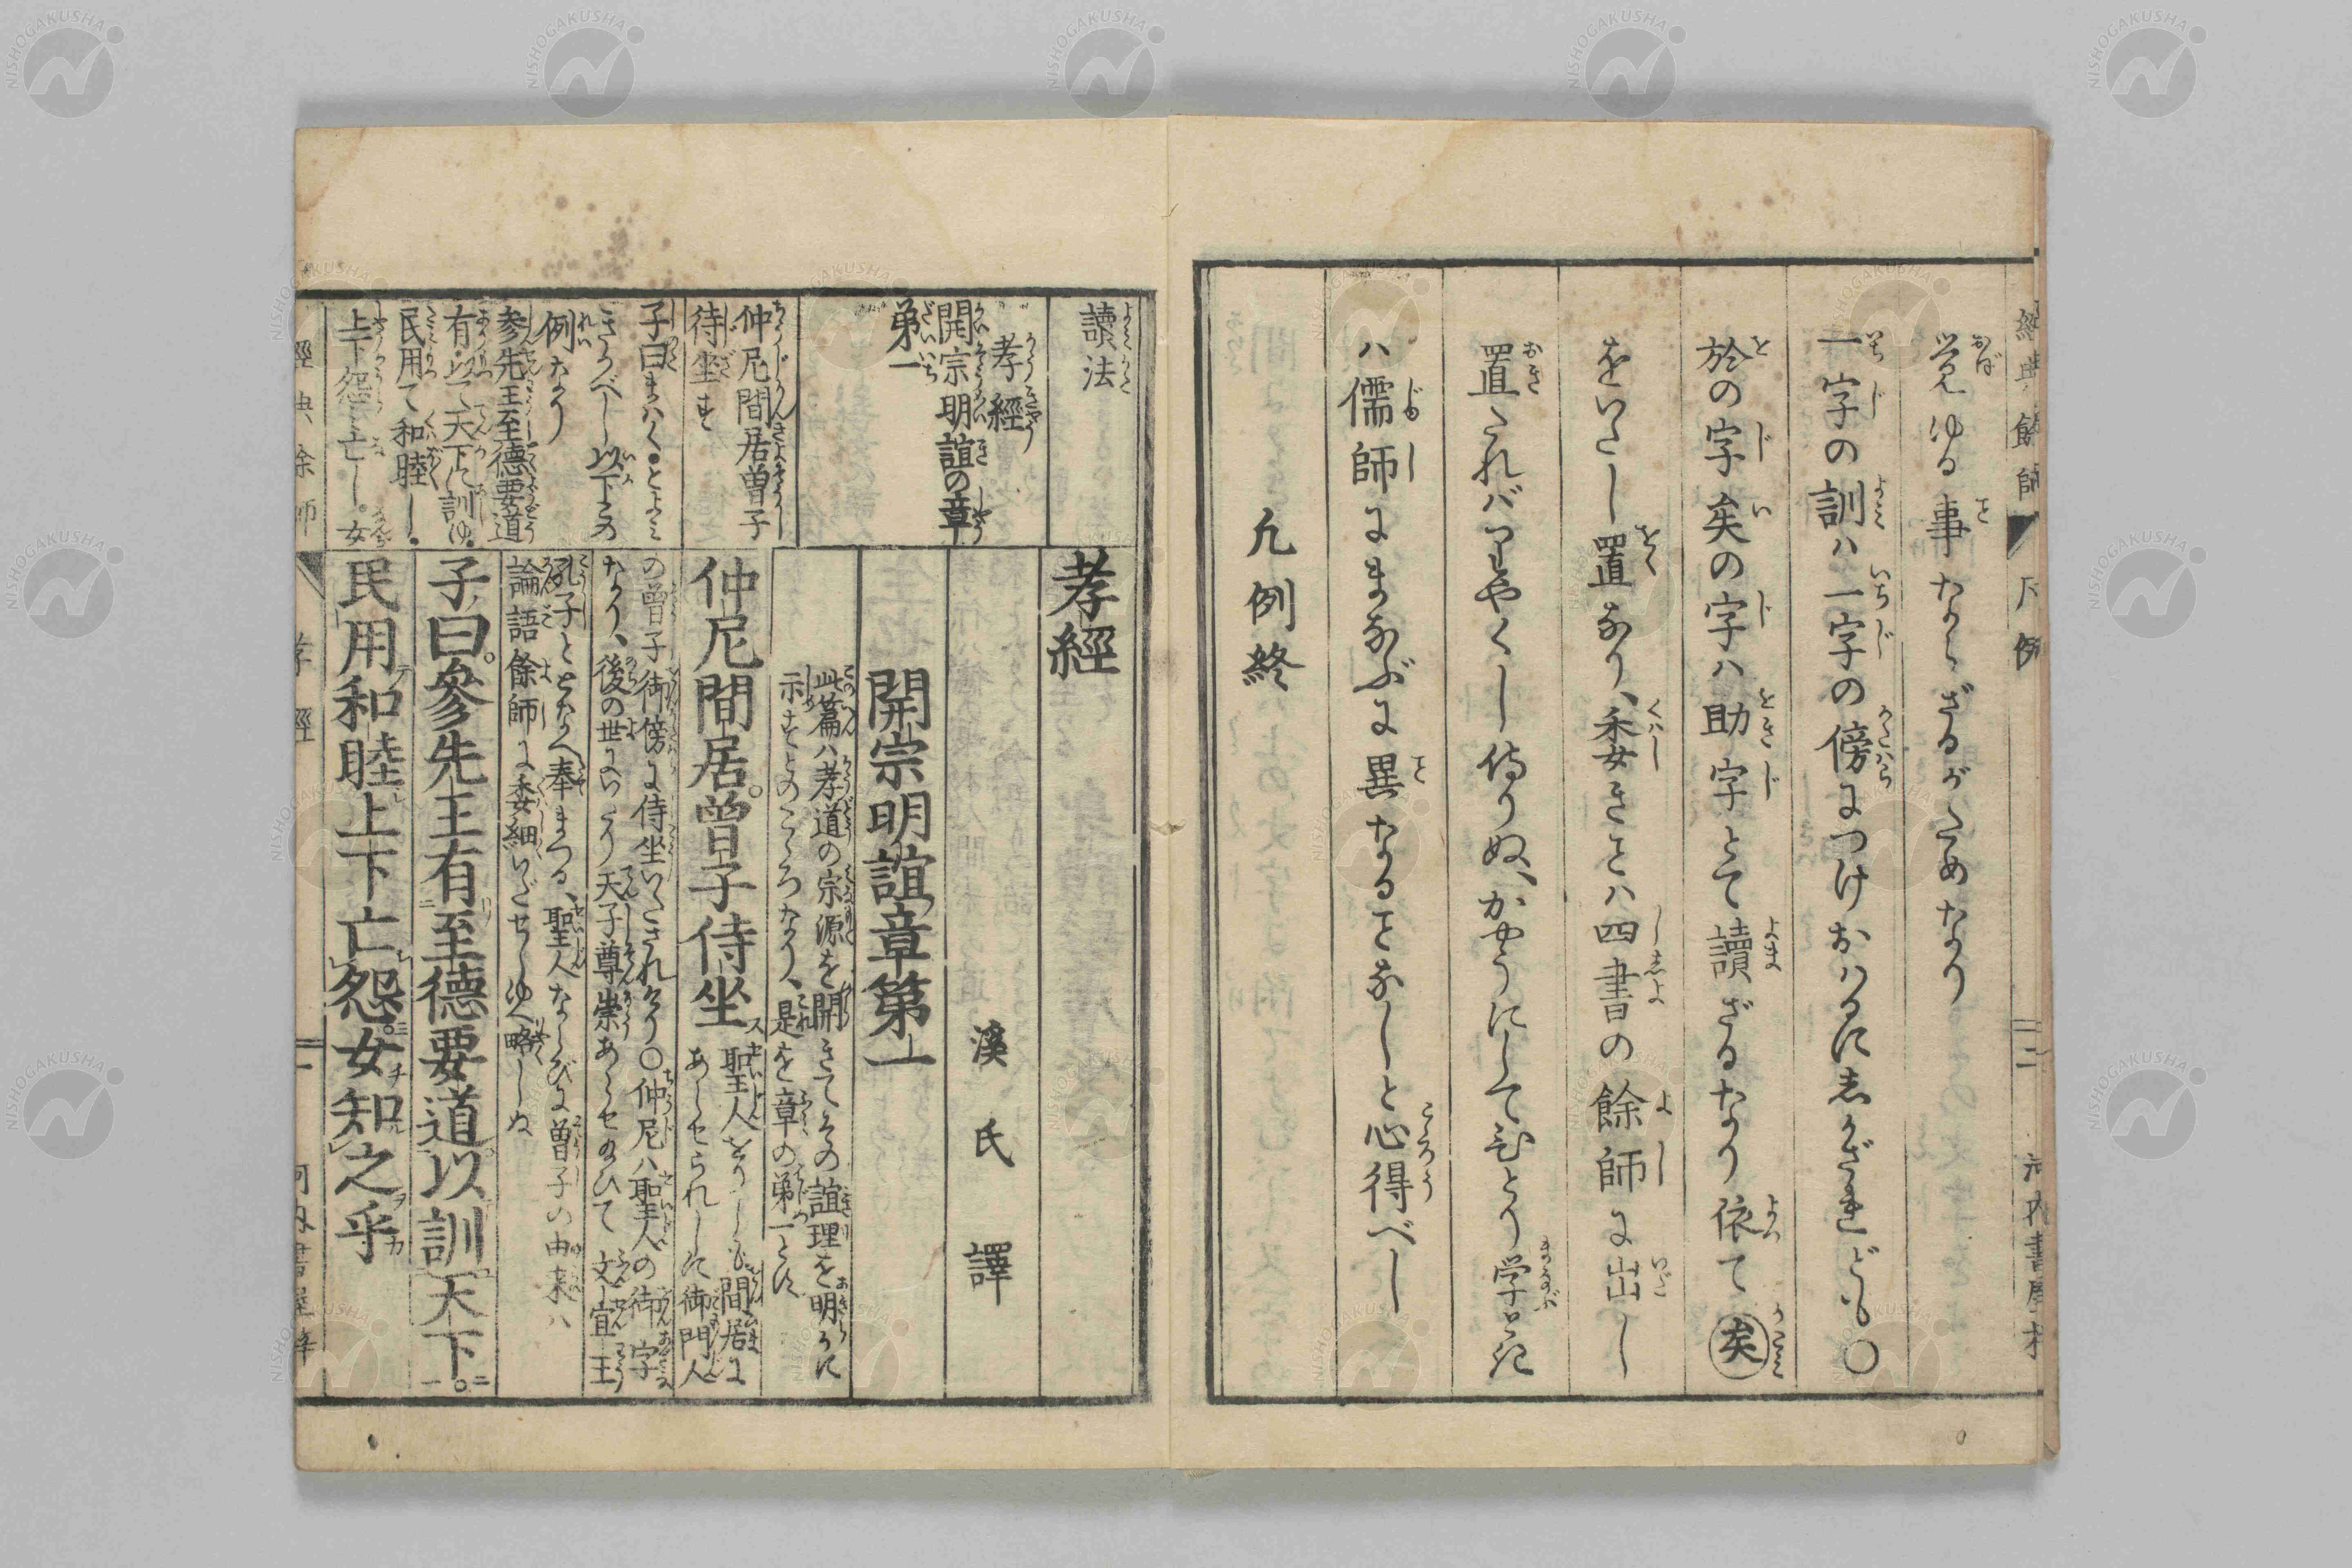 覚ゆる事ならざるがためなり
一字の訓ハ一字の傍につけおハるに志かざれども〇
於の字矣の字ハ助字とて讀ざるなり依て矣
をいたし置なり、委きことハ四書の餘師に出し
置たれバ
ハ儒師にまなぶに異なることなしと心得べし
凡例終
經典餘師
凡例
二
讀法
孝經
開宗明誼の章
第一
仲尼間居曽子
侍坐す
子曰まハく。とよミ
きるべし以下この
例なり
参先王至德要道
有以て天下に訓ゆ。
民用て和睦し。
上下怨亡し。女
孝經
溪氏譯
開宗明誼章第一
此篇ハ孝道の宗源を開きてその誼理を明らかに
示すとのこゝろなり、是を章の第一とす
仲尼間居。曽子侍坐ス
聖人
間居に
あらせられしに御門人
の曽子御傍に侍坐いたされけり〇仲尼ハ聖人の御字
なり、後の世にいたり天子尊崇あらせ給ひて文宣王
孔子ととなへ奉まつる、聖人ならびに曽子の由来ハ
論語餘師に委細いだせるゆへ略しぬ
子曰。參先王有至德要道以訓天下。
民用和睦上下亡怨。女知之乎
孝經
一
NISHOGAKUSHA